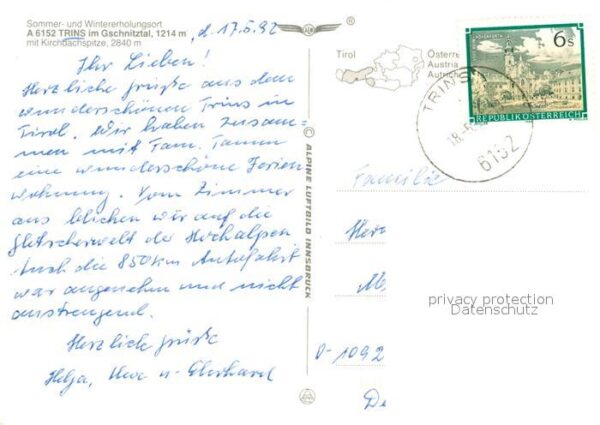 Sommer- und Wintererholungsort
A 6152 TRINS im Gschnitztal, 1214 m
mit Kirchdachspitze, 2840 m
d. 17.5.92
Ihr Lieben!
Herzliche Grüße aus dem
wunderschönen Trins in
Tirol. Wir haben zusam-
men mit Fam.
eine wunderschöne Ferien
wohnung. Vom Zimmer
aus blicken wir auf die
Gletscherwelt der Hochalpen
Auch die 850 km Autofahrt
war angenehm und nicht
anstrengend.
Herzliche Grüße
Helga, Uwe u. Eberhard
© ALPINE LUFTBILD INNSBRUCK
®
Tirol
Österre
Austria
Autrich
6s
REPUBLIK ÖSTERREICH
TRINS
18.-5
6152
Familie
Herr
D-1092
privacy protection
Datenschutz